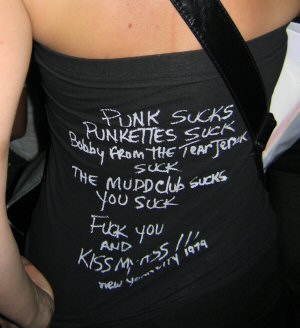 PUNK SUCKS
PUNKETTES SUCK
Bobby FROM THE TEAR JERK
SUCK
THE MUDD Club SUCKS
YOU SUCK
FUCK YOU
AND
KISS MY !!!
NEW YORK CITY 1979